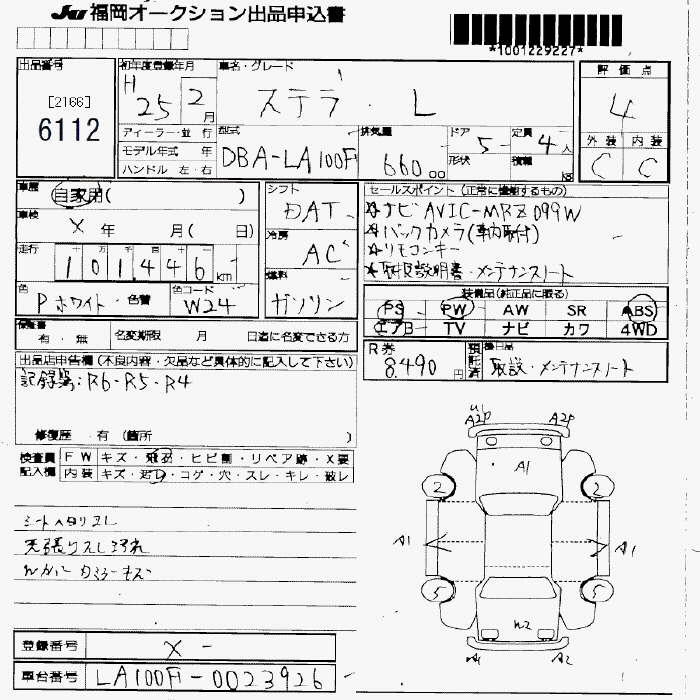 JU 福岡オークション出品申込書
*1001229227*
出品番号
[2166]
6112
初年度登録年月
H 25 2月
ディーラー・並 行
モデル年式 年
ハンドル 左・右
車名・グレード
ステラ ・ L
型式
DBA-LA100F
排気量
660 00
ドア 5
形状
定員 4人
積載 kg
評 価 点
4
外 装 内 装
C C
車歴
自家用( )
車検
X 年 月( 日)
走行
十 万 千 百 十 一
1 0 1 4 4 6 km
色
Pホワイト・色替
色コード
W24
シフト
DAT
冷房
AC
燃料
ガソリン
セールスポイント(正常に機動するもの)
☆ナビAVIC-MRZ099W
☆バックカメラ(車内取付)
☆リモコンキー
☆取扱説明書・メンテナンスノート
装備品(純正品に限る)
PS PW AW SR ABS
エアB TV ナビ カワ 4WD
保証書
有・無
名変期限 月 日迄に名変できる方
R券
8.490円
預託済
後日品
取説・メンテナンスノート
出品店申告欄(不良内容・欠品など具体的に記入して下さい)
記録簿:R6・R5・R4
修復歴 ・有 (箇所 )
検査員記入欄
FW キズ・飛石・ヒビ割・リペア跡・X要
内装 キズ・汚レ・コゲ・穴・スレ・キレ・破レ
シートヘタリスレ
天張りスレ汚れ
登録番号
X -
車台番号
LA100F-0023926
A2P A2P
A1
2 2
A1 A1
5 5
W2
A1 A2